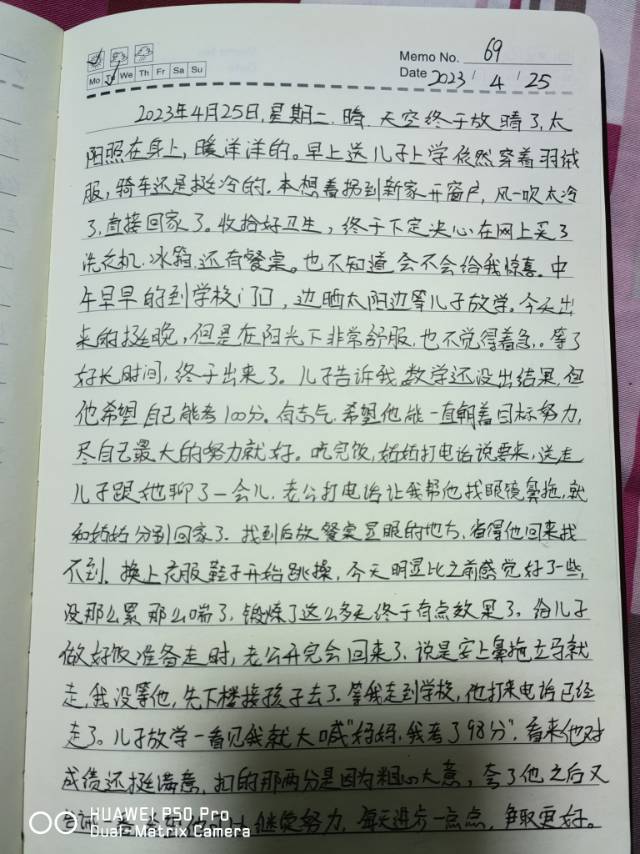 Memo No. 69
Mo Tu We Th Fr Sa Su
Date 2023 / 4 / 25
2023年4月25日,星期二.晴.天空终于放晴了,太
阳照在身上,暖洋洋的。早上送儿子上学依然穿着羽绒
服,骑车还是挺冷的.本想着拐到新家开窗户,风一吹太冷
了,直接回家了。收拾好卫生,终于下定决心在网上买了
洗衣机.冰箱.还有餐桌。也不知道会不会给我惊喜.中
午早早的到学校门口,边晒太阳边等儿子放学。今天出
来的挺晚,但是在阳光下非常舒服,也不觉得着急.等了
好长时间,终于出来了。儿子告诉我数学还没出结果,但
他希望自己能考100分。有志气.希望他能一直朝着目标努力,
尽自己最大的努力就好。吃完饭,婷婷打电话说要来,送走
儿子跟她聊了一会儿.老公打电话让我帮他找眼镜鼻拖,就
和婷婷分别回家了.找到后放餐桌显眼的地方,省得他回来找
不到.换上衣服鞋子开始跳操,今天明显比之前感觉好了一些,
没那么累那么喘了,锻炼了这么多天终于有点效果了.给儿子
做好饭准备走时,老公开完会回来了.说是安上鼻拖立马就
走,我没等他,先下楼接孩子去了.等我走到学校,他打来电话已经
走了。儿子放学一看见我就大喊"妈妈,我考了98分".看来他对
成绩还挺满意,扣的那两分是因为粗心大意,夸了他之后又
继续努力,每天进步一点点,争取更好。
HUAWEI P50 Pro
Dual-Matrix Camera